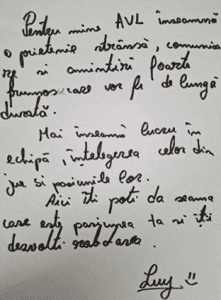 Pentru mine AVL înseamnă
o prietenie strânsă, comunica
re si amintiri foarte
frumoase care vor fi de lungă
durată.
Mai înseamnă lucru în
echipă, înțelegerea celor din
jur si pasiunile lor.
Aici îti poti da seama
care este pasiunea ta si îți
dezvolti